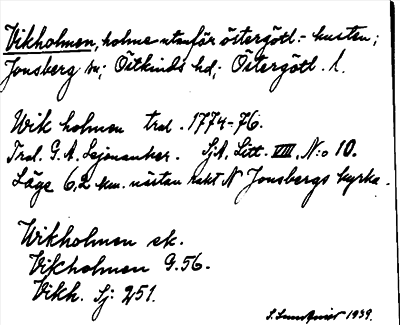 Vikholmen, holme utanför östergötl.-kusten;
Jonsberg sn; Östkinds hd; Östergötl. l.
Wik holmen trol. 1774-76.
Trol. G. A. Lejonanker. SjA, Litt. VIII, N:o 10.
Läge 6,2 km. nästan rakt N Jonsbergs kyrka.
Wikholmen ek.
Vikholmen G.56.
Vikh. Sj: 251.
1939.